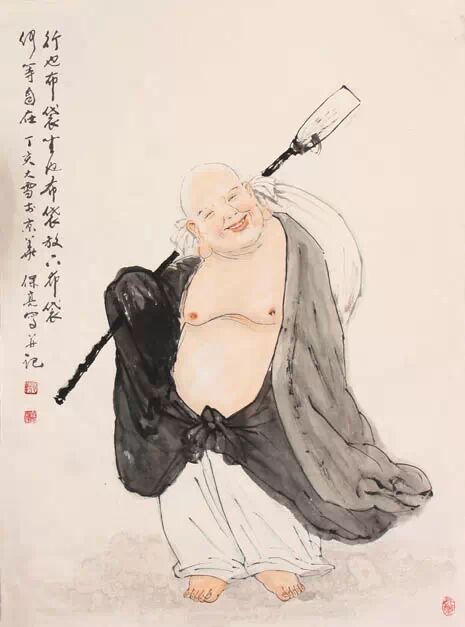 行也布袋坐也布袋放下布袋
何等自在 丁亥大雪于京華 保亮写并记